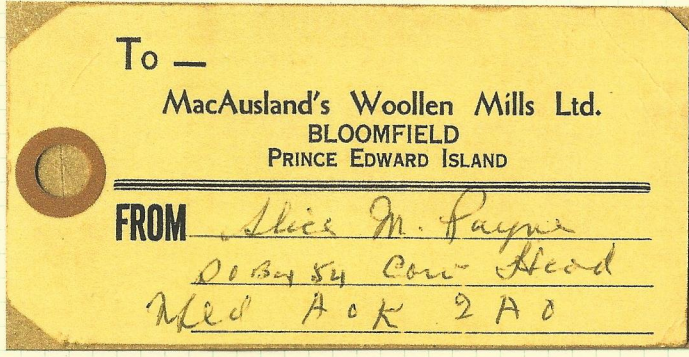 To —
MacAusland's Woollen Mills Ltd.
BLOOMFIELD
PRINCE EDWARD ISLAND
FROM Alice M. Payne
P O Box 54 Cow Head
Nfld A0K 2A0